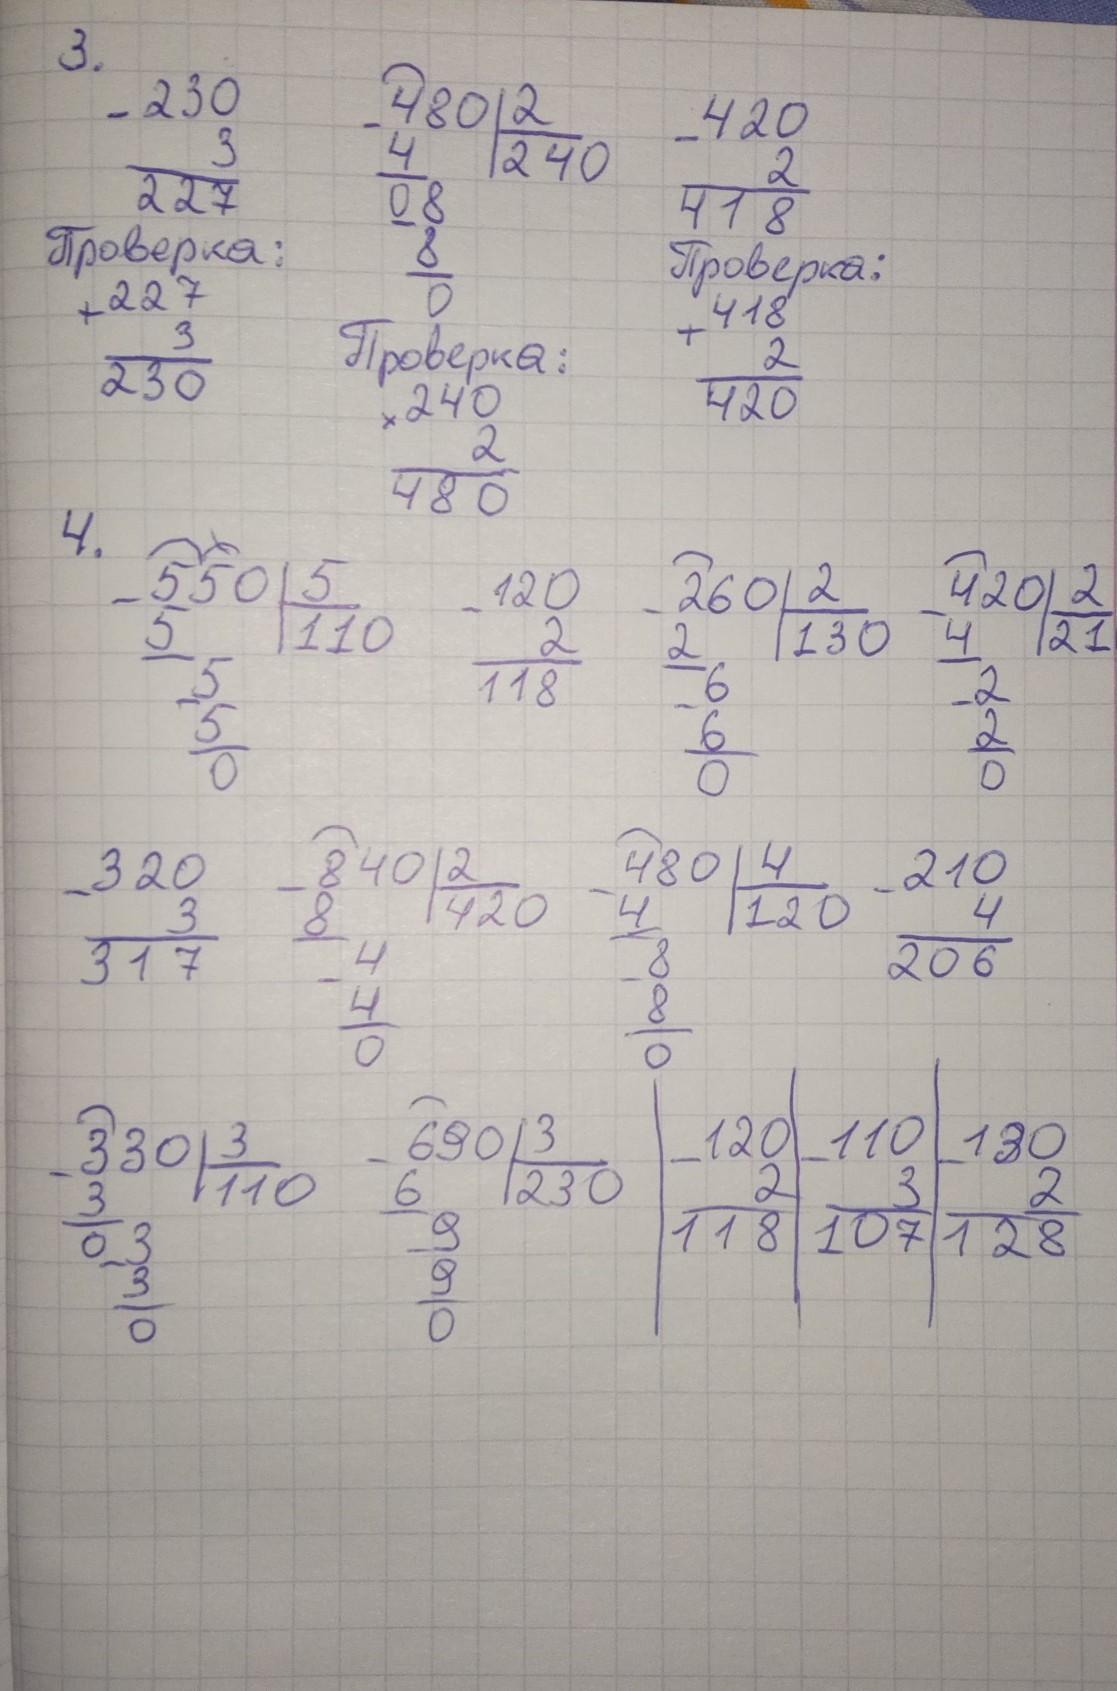 3.
-230
3
227
Проверка:
+227
3
230
-480 2
4 240
08
-8
0
Проверка:
×240
2
480
-420
2
418
Проверка:
+418
2
420
4.
-550 5
5 110
-5
5
0
-120
2
118
-260 2
2 130
-6
6
0
-420 2
4 21
-2
2
0
-320
3
317
-840 2
8 420
-4
4
0
-480 4
4 120
-8
8
0
-210
4
206
-330 3
3 110
03
3
0
-690 3
6 230
-9
9
0
-120
2
118
-110
3
107
-130
2
128